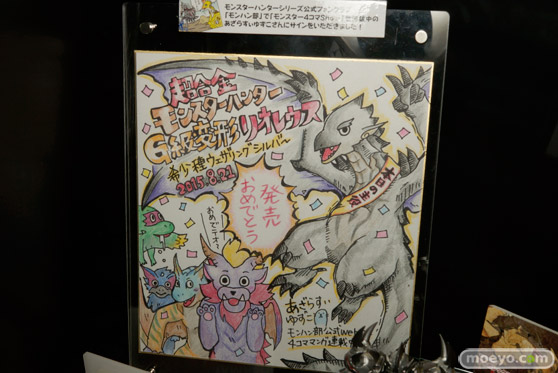 モンスターハンターシリーズ公式ファンクラブ
「モンハン部」で「モンスター4コマShop」連載中の
あざらすいゆずこさんにサインをいただきました！
超合金
モンスターハンター
G級変形リオレウス
希少種ウェザリングシルバー
2015.8.21
本日の主役
発売
おめでとう
おめでテオ～
あざらすい
ゆずこ
モンハン部公式web
4コママンガ連載
moeyo.com